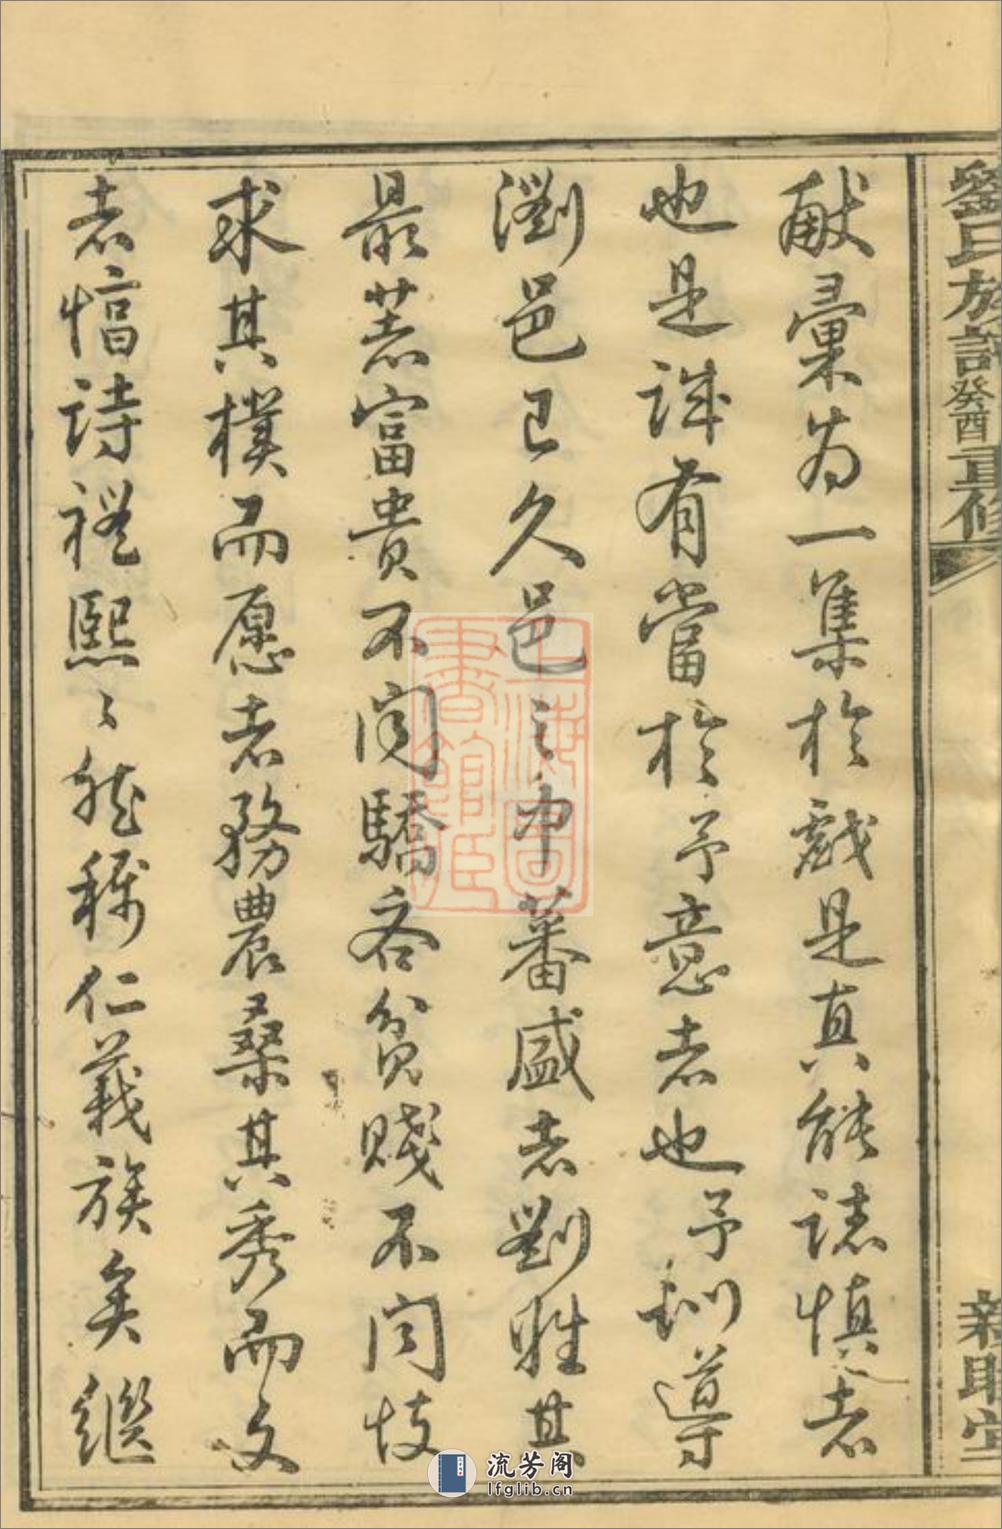 劉氏族譜癸酉重修
猷彙為一集於戲是真能誌慎之者
也是誠有當於予意者也予訓導
瀏邑已久邑之中蕃盛者劉姓其
最著富貴不聞驕吝貧賤不聞忮
求其樸而愿者務農桑其秀而文
者惇詩禮熙〻然稱仁義族矣繼
上海圖書館臧
流芳阁
lfglib.cn